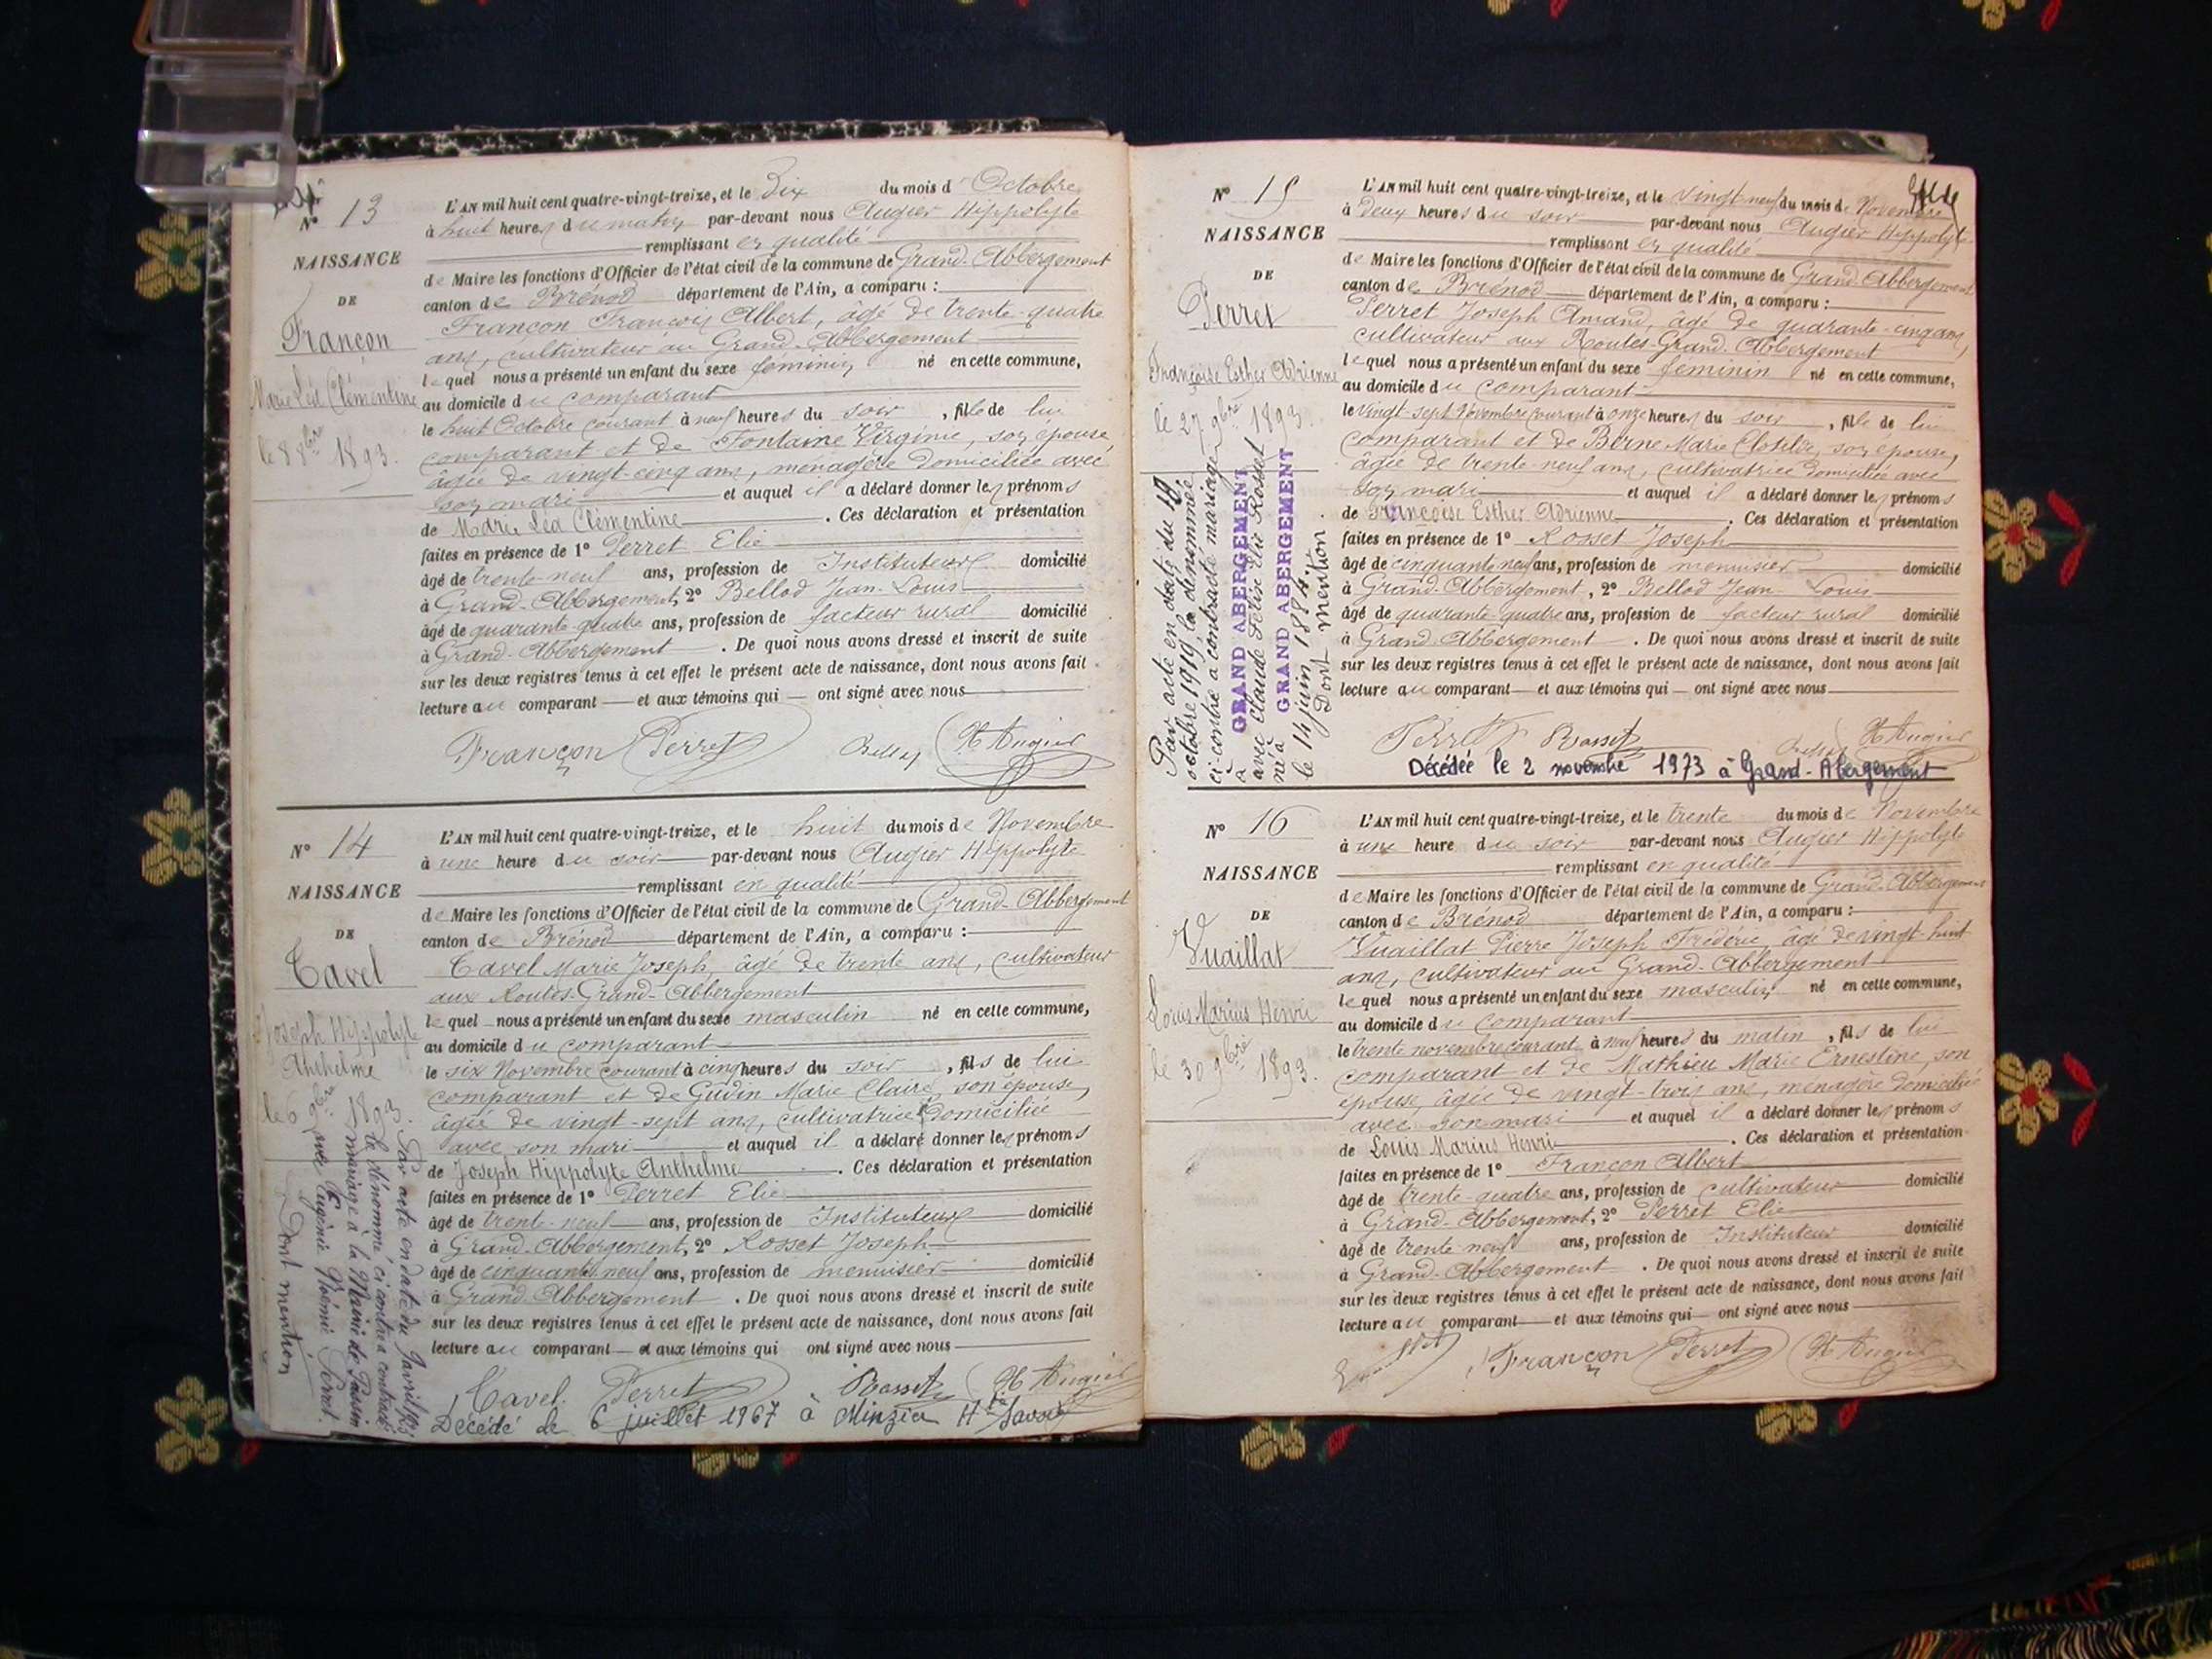 Nº 13
NAISSANCE
DE
Françon
Marie Léa Clémentine
le 8 8bre 1893.
L'AN mil huit cent quatre-vingt-treize, et le Dix du mois d'Octobre
à huit heures du matin par-devant nous Augier Hippolyte
remplissant en qualité
de Maire les fonctions d'Officier de l'état civil de la commune de Grand-Abbergement
canton de Brénod département de l'Ain, a comparu :
Françon François Albert, âgé de trente-quatre
ans, cultivateur au Grand-Abbergement
lequel nous a présenté un enfant du sexe féminin, né en cette commune,
au domicile du comparant
le huit Octobre courant à neuf heures du soir, fille de lui
comparant et de Fontaine Virginie, son épouse
âgée de vingt-cinq ans, ménagère domiciliée avec
son mari et auquel il a déclaré donner les prénoms
de Marie Léa Clémentine. Ces déclaration et présentation
faites en présence de 1º Perret Elie
âgé de trente-neuf ans, profession de Instituteur domicilié
à Grand-Abbergement, 2º Bellod Jean-Louis
âgé de quarante-quatre ans, profession de facteur rural domicilié
à Grand-Abbergement. De quoi nous avons dressé et inscrit de suite
sur les deux registres tenus à cet effet le présent acte de naissance, dont nous avons fait
lecture au comparant et aux témoins qui ont signé avec nous
Françon Perret H Augier
Nº 14
NAISSANCE
DE
Tavel
Joseph Hippolyte
Anthelme
le 6 9bre 1893.
Par acte en date du avril
le dénommé ci-contre a contracté
mariage à la Mairie de
avec Eugénie Noémie Perret.
Dont mention
L'AN mil huit cent quatre-vingt-treize, et le huit du mois de Novembre
à une heure du soir par-devant nous Augier Hippolyte
remplissant en qualité
de Maire les fonctions d'Officier de l'état civil de la commune de Grand-Abbergement
canton de Brénod département de l'Ain, a comparu :
Tavel Marie Joseph, âgé de trente ans, cultivateur
aux Routes-Grand-Abbergement
lequel nous a présenté un enfant du sexe masculin né en cette commune,
au domicile du comparant
le six Novembre courant à cinq heures du soir, fils de lui
comparant et de Gudin Marie Claire, son épouse,
âgée de vingt-sept ans, cultivatrice domiciliée
avec son mari et auquel il a déclaré donner les prénoms
de Joseph Hippolyte Anthelme. Ces déclaration et présentation
faites en présence de 1º Perret Elie
âgé de trente-neuf ans, profession de Instituteur domicilié
à Grand-Abbergement, 2º Rosset Joseph
âgé de cinquante-neuf ans, profession de menuisier domicilié
à Grand-Abbergement. De quoi nous avons dressé et inscrit de suite
sur les deux registres tenus à cet effet le présent acte de naissance, dont nous avons fait
lecture au comparant et aux témoins qui ont signé avec nous
Tavel. Perret Rosset H Augier
Décédé le 6 juillet 1967 à Minzier Hte Savoie
Nº 15
NAISSANCE
DE
Perret
Françoise Esther Adrienne
le 27 9bre 1893.
Par acte en date du 18
octobre 1919, la dénommée
ci-contre a contracté mariage
à GRAND ABERGEMENT
avec Claude Félix Elie Rosset
né à GRAND ABERGEMENT
le 14 juin 1884.
Dont mention
L'AN mil huit cent quatre-vingt-treize, et le vingt-neuf du mois de Novembre
à deux heures du soir par-devant nous Augier Hippolyte
remplissant en qualité
de Maire les fonctions d'Officier de l'état civil de la commune de Grand-Abbergement
canton de Brénod département de l'Ain, a comparu :
Perret Joseph Amand, âgé de quarante-cinq ans,
cultivateur aux Routes-Grand-Abbergement
lequel nous a présenté un enfant du sexe féminin né en cette commune,
au domicile du comparant
le vingt-sept Novembre courant à onze heures du soir, fille de lui
comparant et de Berne Marie Clotilde, son épouse,
âgée de trente-neuf ans, cultivatrice domiciliée avec
son mari et auquel il a déclaré donner les prénoms
de Françoise Esther Adrienne. Ces déclaration et présentation
faites en présence de 1º Rosset Joseph
âgé de cinquante neuf ans, profession de menuisier domicilié
à Grand-Abbergement, 2º Bellod Jean-Louis
âgé de quarante-quatre ans, profession de facteur rural domicilié
à Grand-Abbergement. De quoi nous avons dressé et inscrit de suite
sur les deux registres tenus à cet effet le présent acte de naissance, dont nous avons fait
lecture au comparant et aux témoins qui ont signé avec nous
Perret Rosset H Augier
Décédée le 2 novembre 1973 à Grand-Abergement
Nº 16
NAISSANCE
DE
Vuaillat
Louis Marius Henri
le 30 9bre 1893.
L'AN mil huit cent quatre-vingt-treize, et le trente du mois de Novembre
à une heure du soir par-devant nous Augier Hippolyte
remplissant en qualité
de Maire les fonctions d'Officier de l'état civil de la commune de Grand-Abbergement
canton de Brénod département de l'Ain, a comparu :
Vuaillat Pierre Joseph Frédéric, âgé de vingt-huit
ans, cultivateur au Grand-Abbergement
lequel nous a présenté un enfant du sexe masculin né en cette commune,
au domicile du comparant
le trente novembre courant à neuf heures du matin, fils de lui
comparant et de Mathieu Marie Ernestine, son
épouse, âgée de vingt-trois ans, ménagère domiciliée
avec son mari et auquel il a déclaré donner les prénoms
de Louis Marius Henri. Ces déclaration et présentation
faites en présence de 1º Françon Albert
âgé de trente-quatre ans, profession de cultivateur domicilié
à Grand-Abbergement, 2º Perret Elie
âgé de trente-neuf ans, profession de Instituteur domicilié
à Grand-Abbergement. De quoi nous avons dressé et inscrit de suite
sur les deux registres tenus à cet effet le présent acte de naissance, dont nous avons fait
lecture au comparant et aux témoins qui ont signé avec nous
Françon Perret H Augier